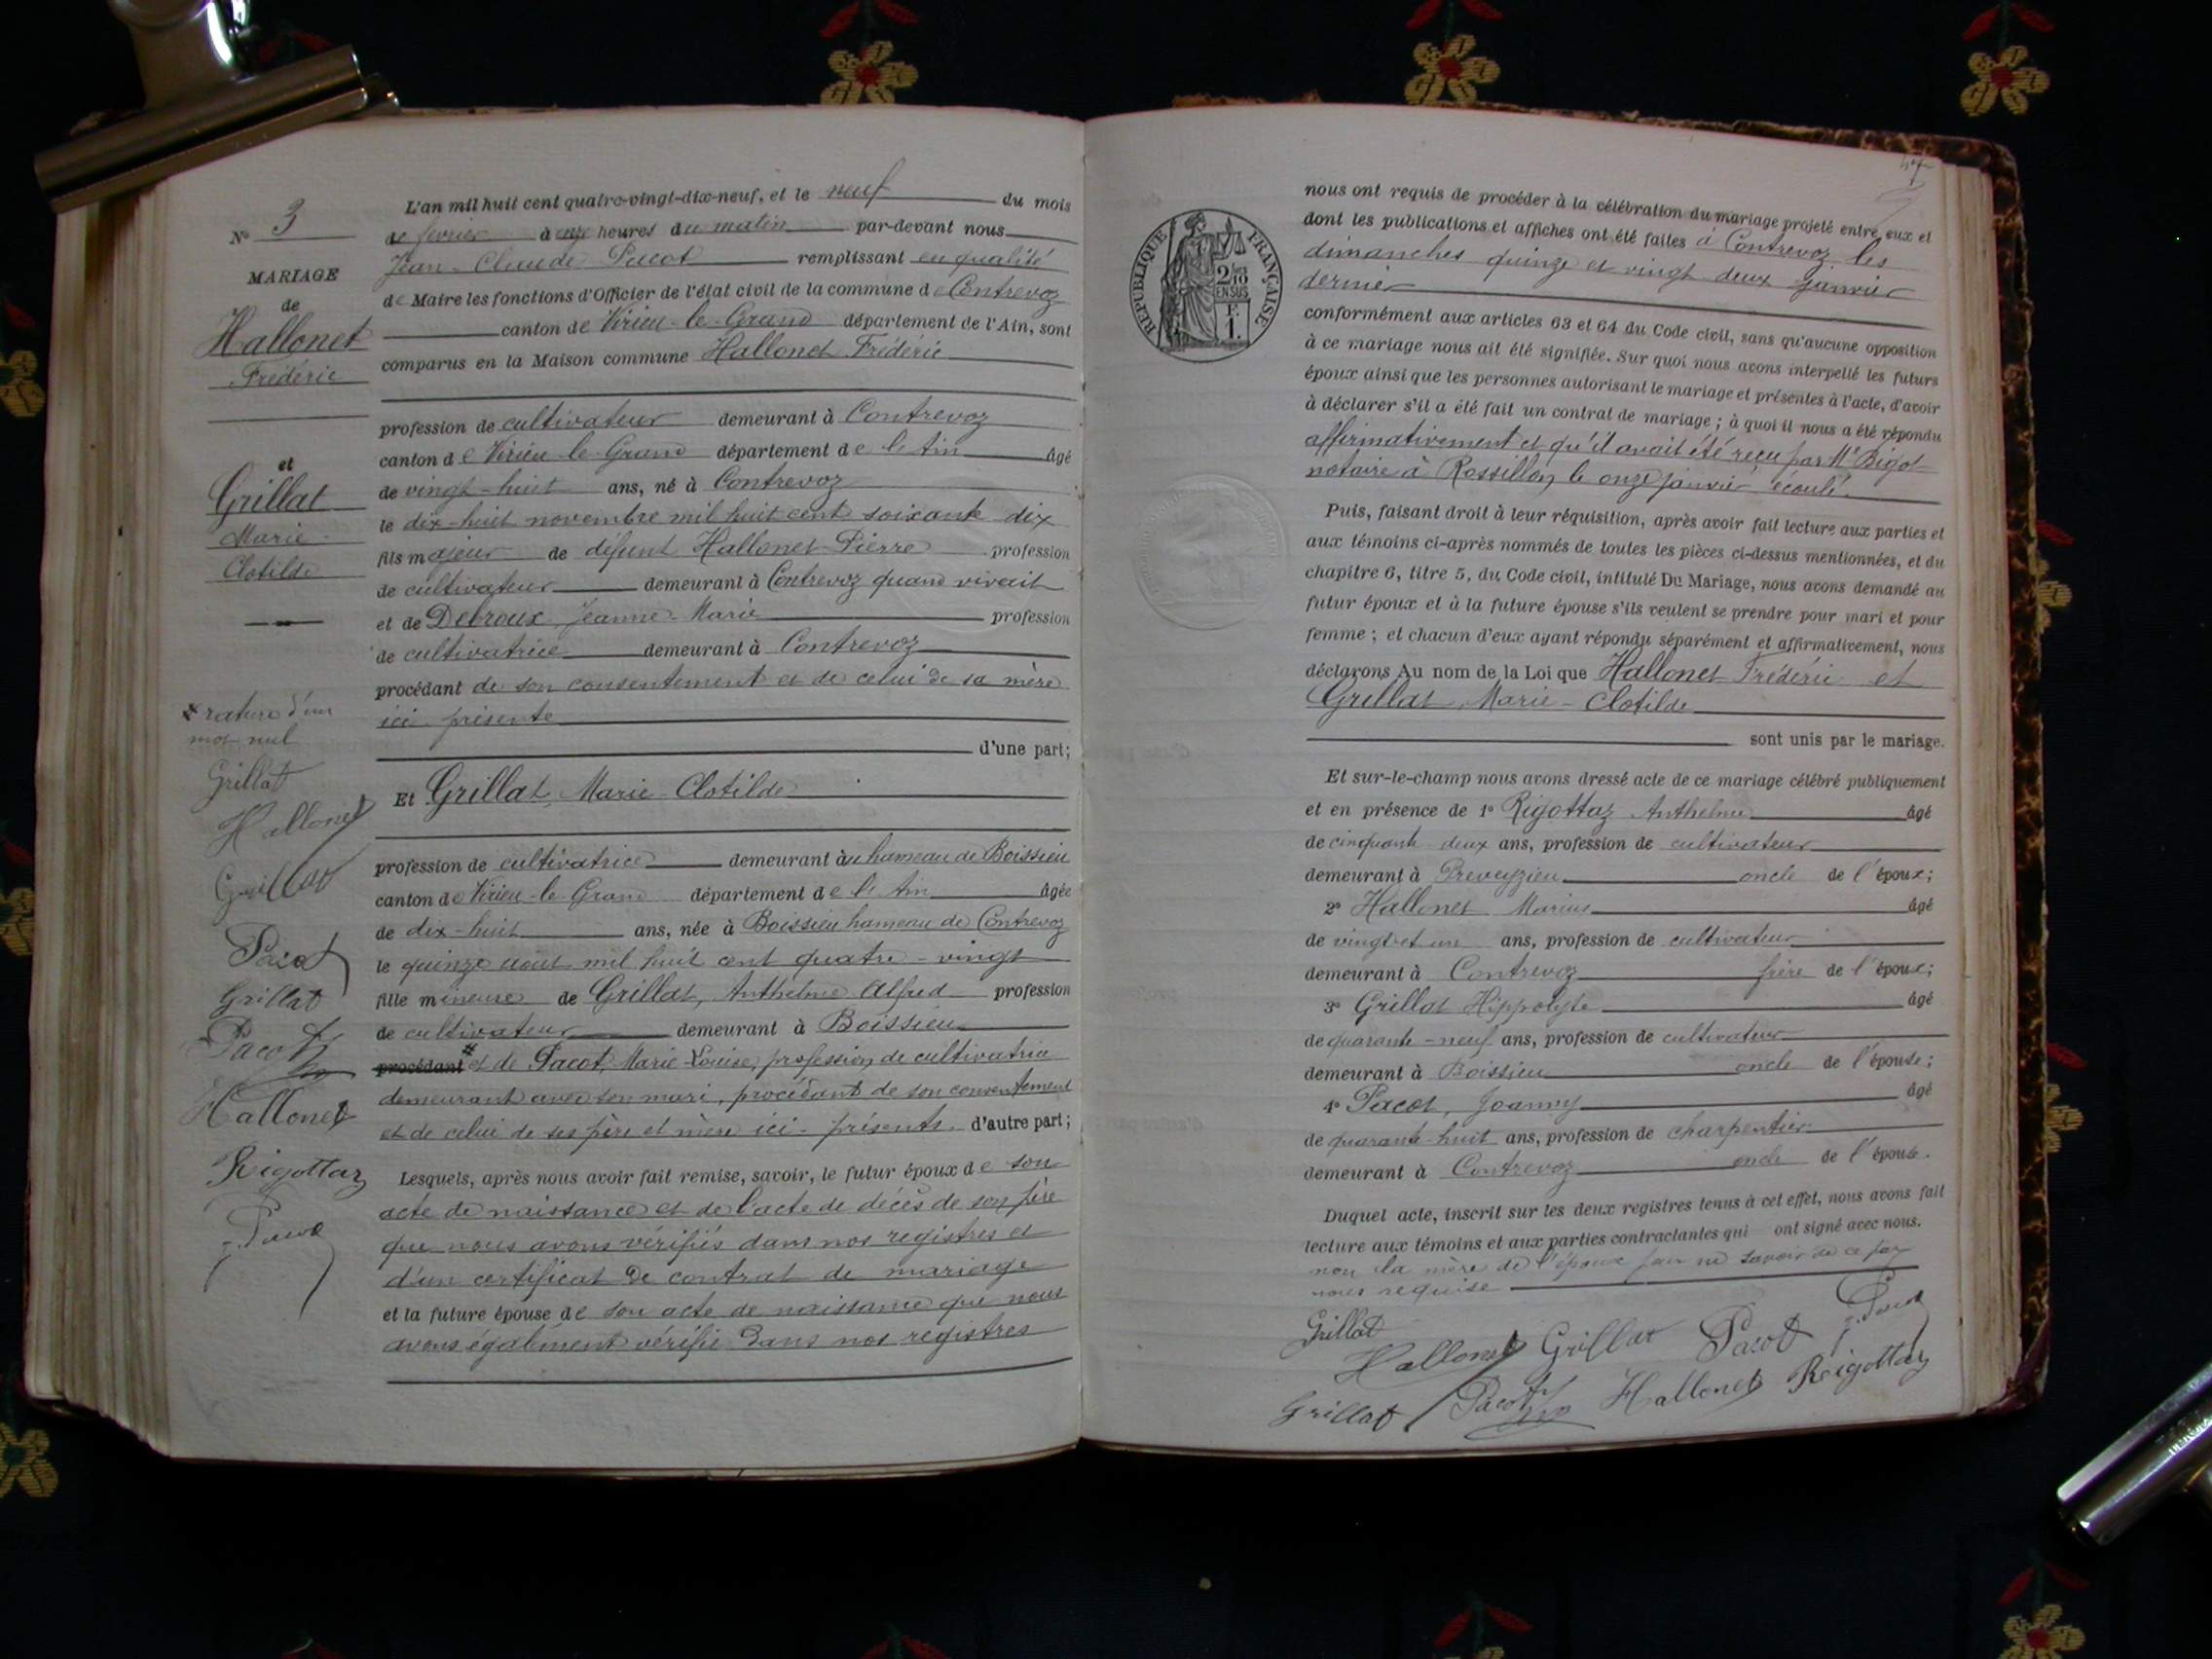 N° 3
MARIAGE
de
Hallonet
Frédéric
et
Grillat
Marie
Clotilde
rature d'un
mot nul
Grillat
Hallonet
Grillat
Pacot
Grillat
Pacot
Hallonet
Rigottaz
L'an mil huit cent quatre-vingt-dix-neuf, et le neuf du mois
de février à onze heures du matin par-devant nous
Jean-Claude Pacot remplissant en qualité
de Maire les fonctions d'Officier de l'état civil de la commune de Contrevoz
canton de Virieu-le-Grand département de l'Ain, sont
comparus en la Maison commune Hallonet Frédéric
profession de cultivateur demeurant à Contrevoz
canton de Virieu-le-Grand département de l'Ain âgé
de vingt-huit ans, né à Contrevoz
le dix-huit novembre mil huit cent soixante dix
fils majeur de défunt Hallonet Pierre profession
de cultivateur demeurant à Contrevoz quand vivait
et de Debroux, Jeanne-Marie profession
de cultivatrice demeurant à Contrevoz
procédant de son consentement et de celui de sa mère
ici présente
d'une part;
Et Grillat, Marie-Clotilde
profession de cultivatrice demeurant au hameau de Boissieu
canton de Virieu-le-Grand département de l'Ain âgée
de dix-huit ans, née à Boissieu hameau de Contrevoz
le quinze août mil huit cent quatre-vingt
fille mineure de Grillat, Anthelme Alfred profession
de cultivateur demeurant à Boissieu
procédant et de Pacot, Marie-Louise, profession de cultivatrice
demeurant avec son mari, procédant de son consentement
et de celui de ses père et mère ici-présents. d'autre part;
Lesquels, après nous avoir fait remise, savoir, le futur époux de son
acte de naissance et de l'acte de décès de son père
que nous avons vérifiés dans nos registres et
d'un certificat de contrat de mariage
et la future épouse de son acte de naissance que nous
avons également vérifié dans nos registres
47
RÉPUBLIQUE FRANÇAISE
2/10
EN SUS
F.
1.
nous ont requis de procéder à la célébration du mariage projeté entre eux et
dont les publications et affiches ont été faites à Contrevoz les
dimanches quinze et vingt deux janvier
dernier
conformément aux articles 63 et 64 du Code civil, sans qu'aucune opposition
à ce mariage nous ait été signifiée. Sur quoi nous avons interpellé les futurs
époux ainsi que les personnes autorisant le mariage et présentes à l'acte, d'avoir
à déclarer s'il a été fait un contrat de mariage; à quoi il nous a été répondu
affirmativement et qu'il avait été reçu par Me Bigot
notaire à Rossillon, le onze janvier écoulé.
Puis, faisant droit à leur réquisition, après avoir fait lecture aux parties et
aux témoins ci-après nommés de toutes les pièces ci-dessus mentionnées, et du
chapitre 6, titre 5, du Code civil, intitulé Du Mariage, nous avons demandé au
futur époux et à la future épouse s'ils veulent se prendre pour mari et pour
femme; et chacun d'eux ayant répondu séparément et affirmativement, nous
déclarons Au nom de la Loi que Hallonet Frédéric et
Grillat, Marie-Clotilde
sont unis par le mariage.
Et sur-le-champ nous avons dressé acte de ce mariage célébré publiquement
et en présence de 1° Rigottaz Anthelme âgé
de cinquante-deux ans, profession de cultivateur
demeurant à Preveyzieu oncle de l'époux;
2° Hallonet Marius âgé
de vingt-et un ans, profession de cultivateur
demeurant à Contrevoz frère de l'époux;
3° Grillat Hippolyte âgé
de quarante-neuf ans, profession de cultivateur
demeurant à Boissieu oncle de l'épouse;
4° Pacot, Joanny âgé
de quarante-huit ans, profession de charpentier
demeurant à Contrevoz oncle de l'épouse.
Duquel acte, inscrit sur les deux registres tenus à cet effet, nous avons fait
lecture aux témoins et aux parties contractantes qui ont signé avec nous.
non la mère de l'époux pour ne savoir de ce par
nous requise
Grillat
Hallonet Grillat Pacot
Grillat Pacot Hallonet Rigottaz